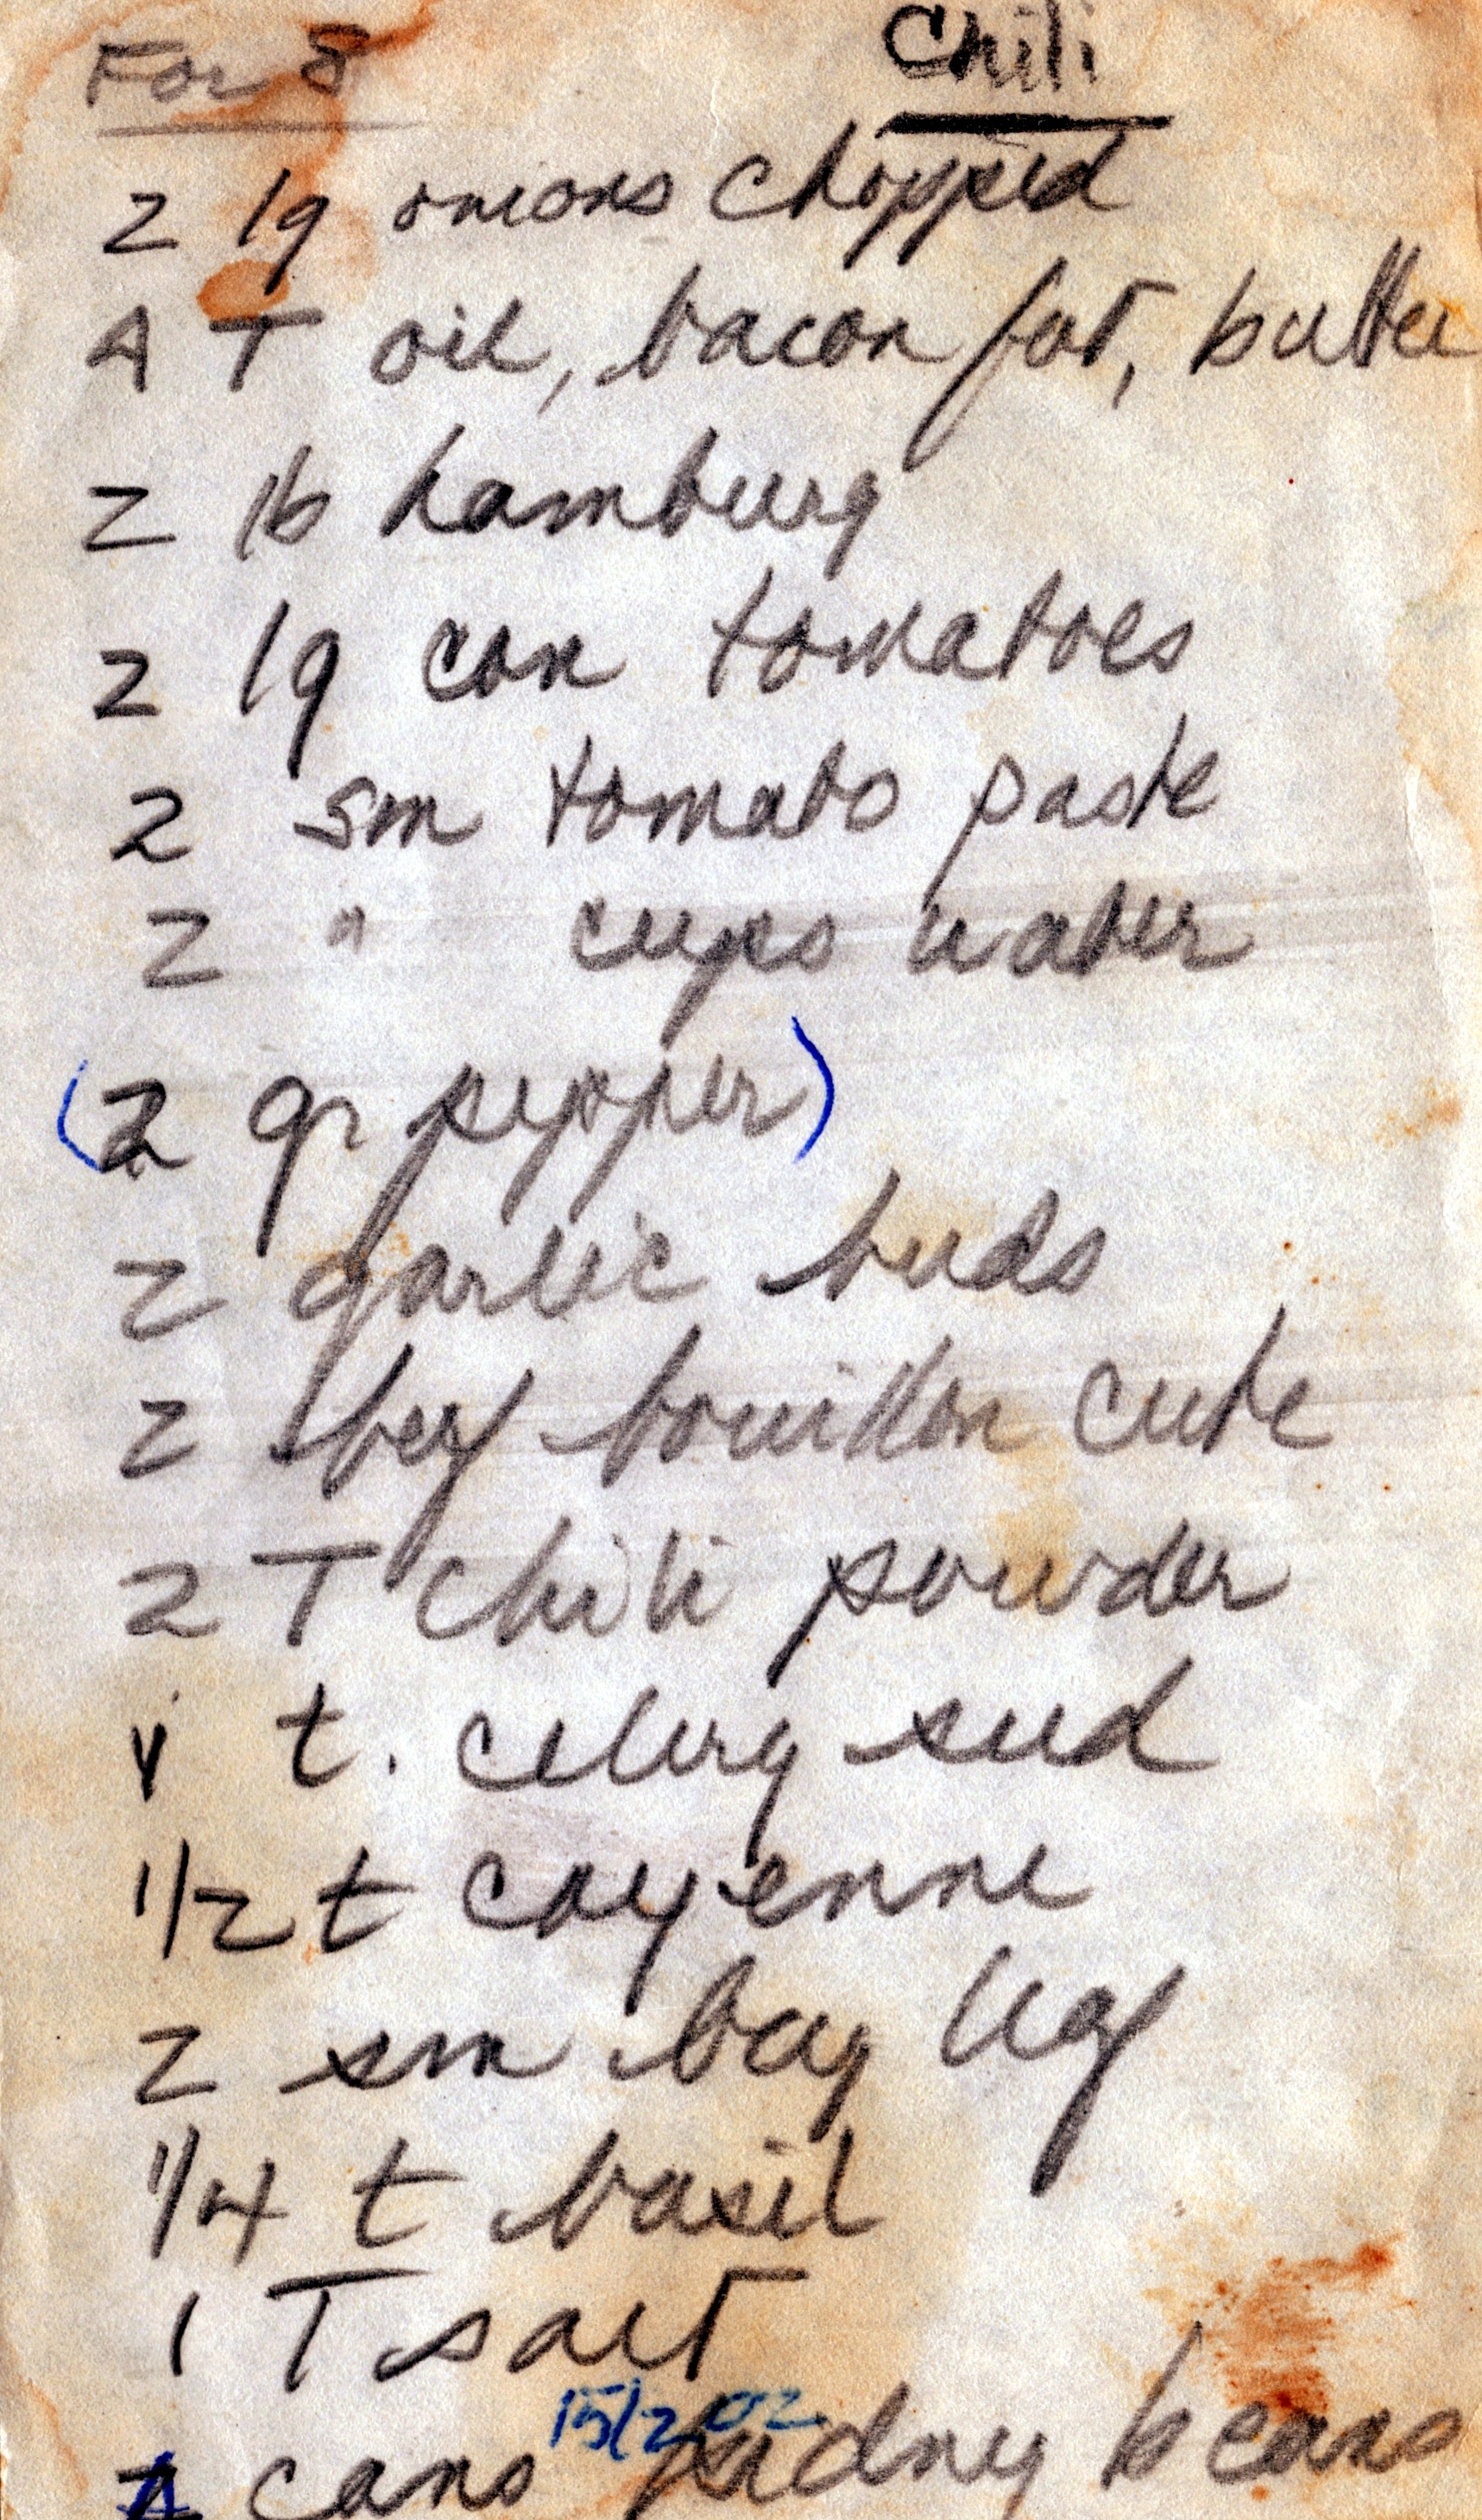 For 8 Chili
2 lg onions chopped
4 T oil, bacon fat, butter
2 lb hamburg
2 lg can tomatoes
2 sm tomato paste
2 " cups water
(2 gr pepper)
2 garlic buds
2 beef bouillon cube
2 T chili powder
1 t. celery seed
1/2 t cayenne
2 sm bay leaf
1/4 t basil
1 T salt
15 1/2 oz
cans kidney beans